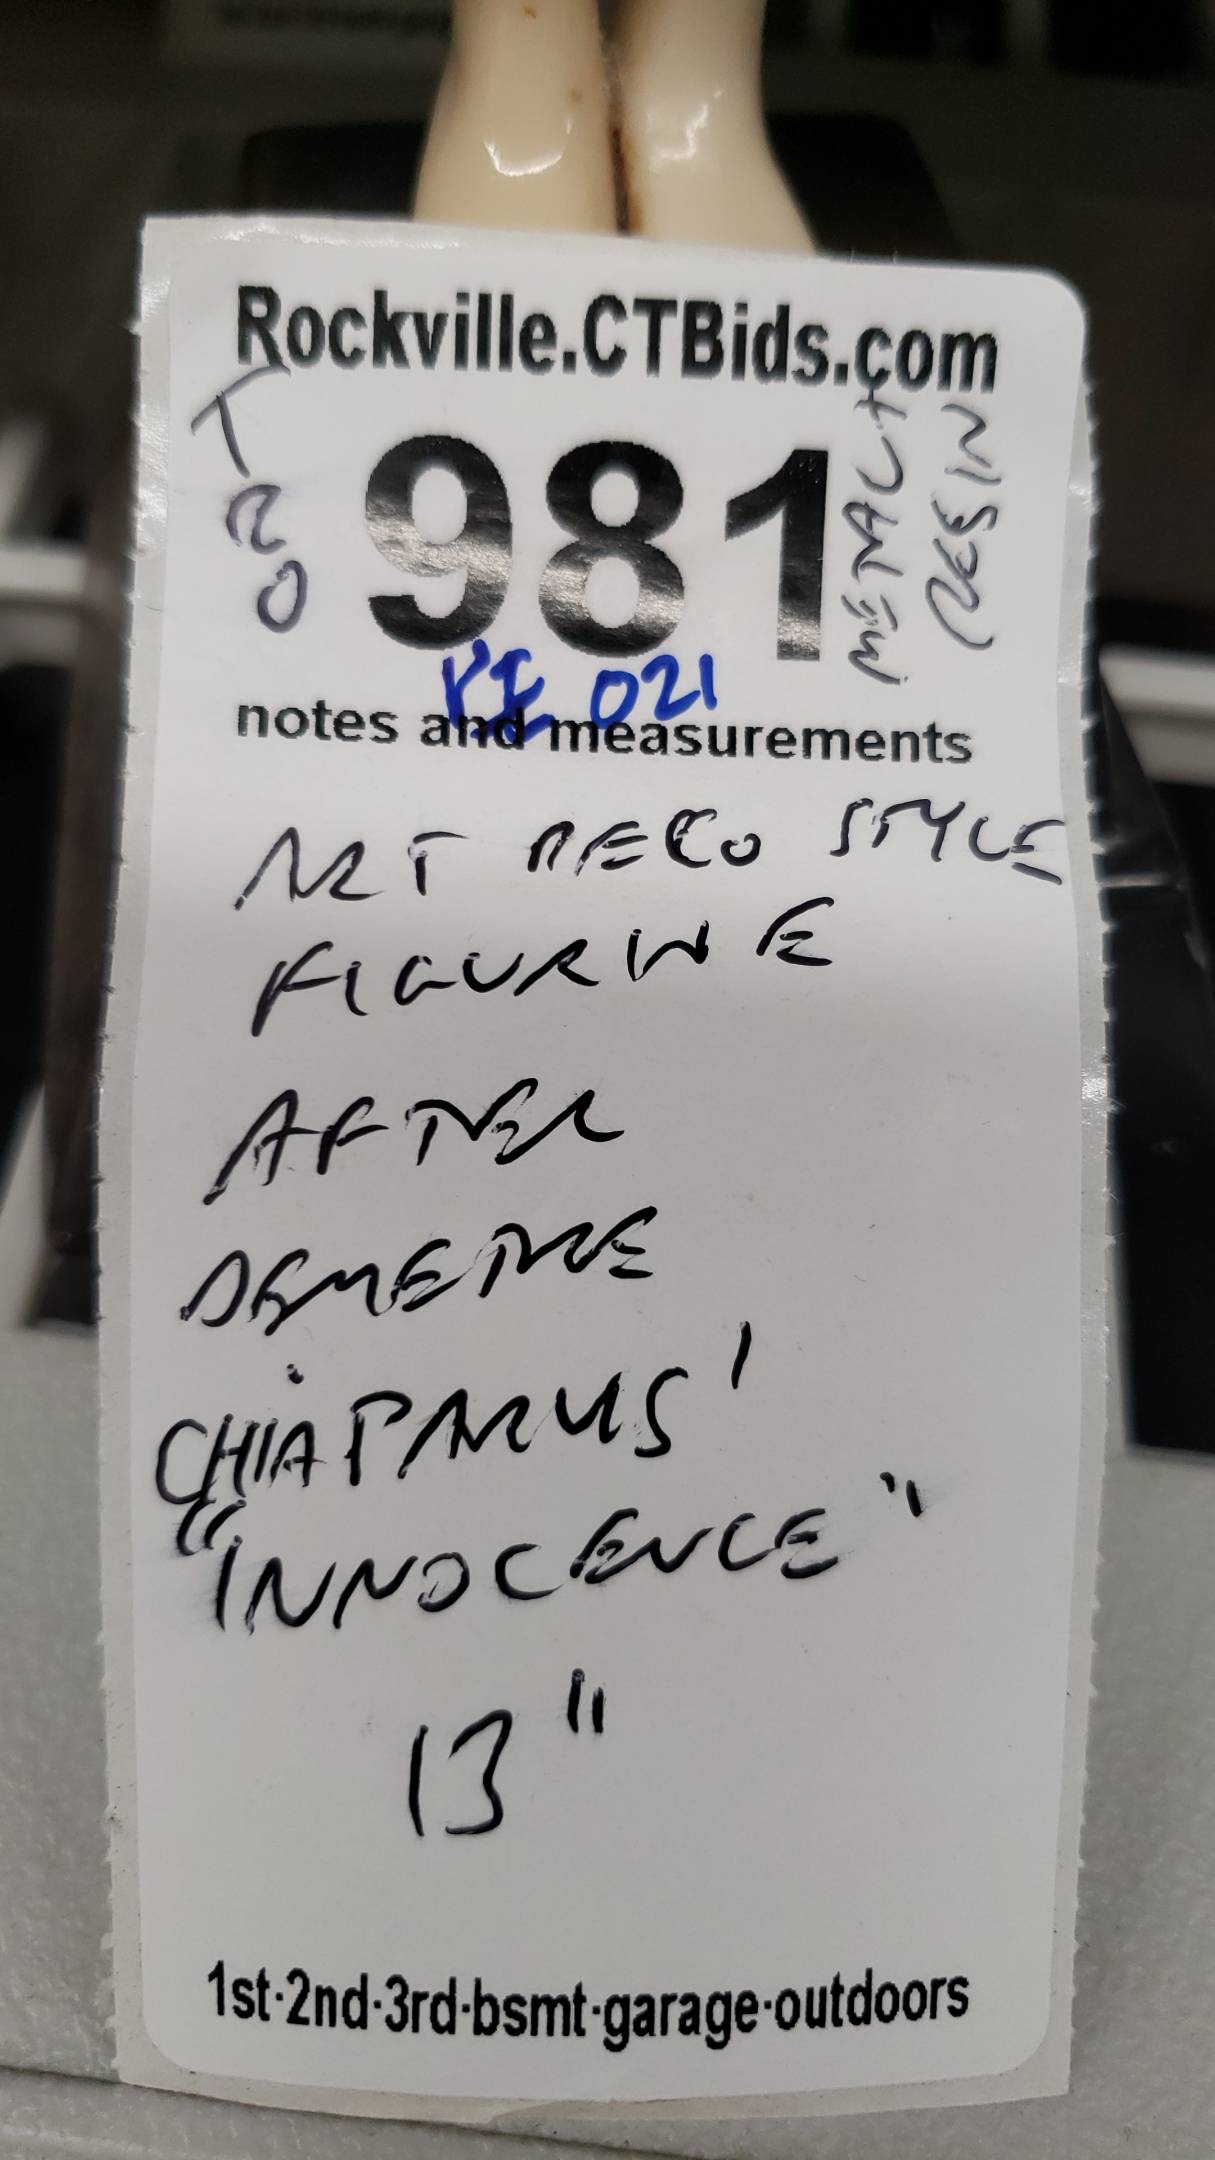 Rockville.CTBids.com
TRO
981
METAL +
RESIN
021
notes and measurements
ART DECO STYLE
FIGURINE
AFTER
DEMETRE
CHIAPARUS'
"INNOCENCE"
13"
1st·2nd·3rd·bsmt·garage·outdoors